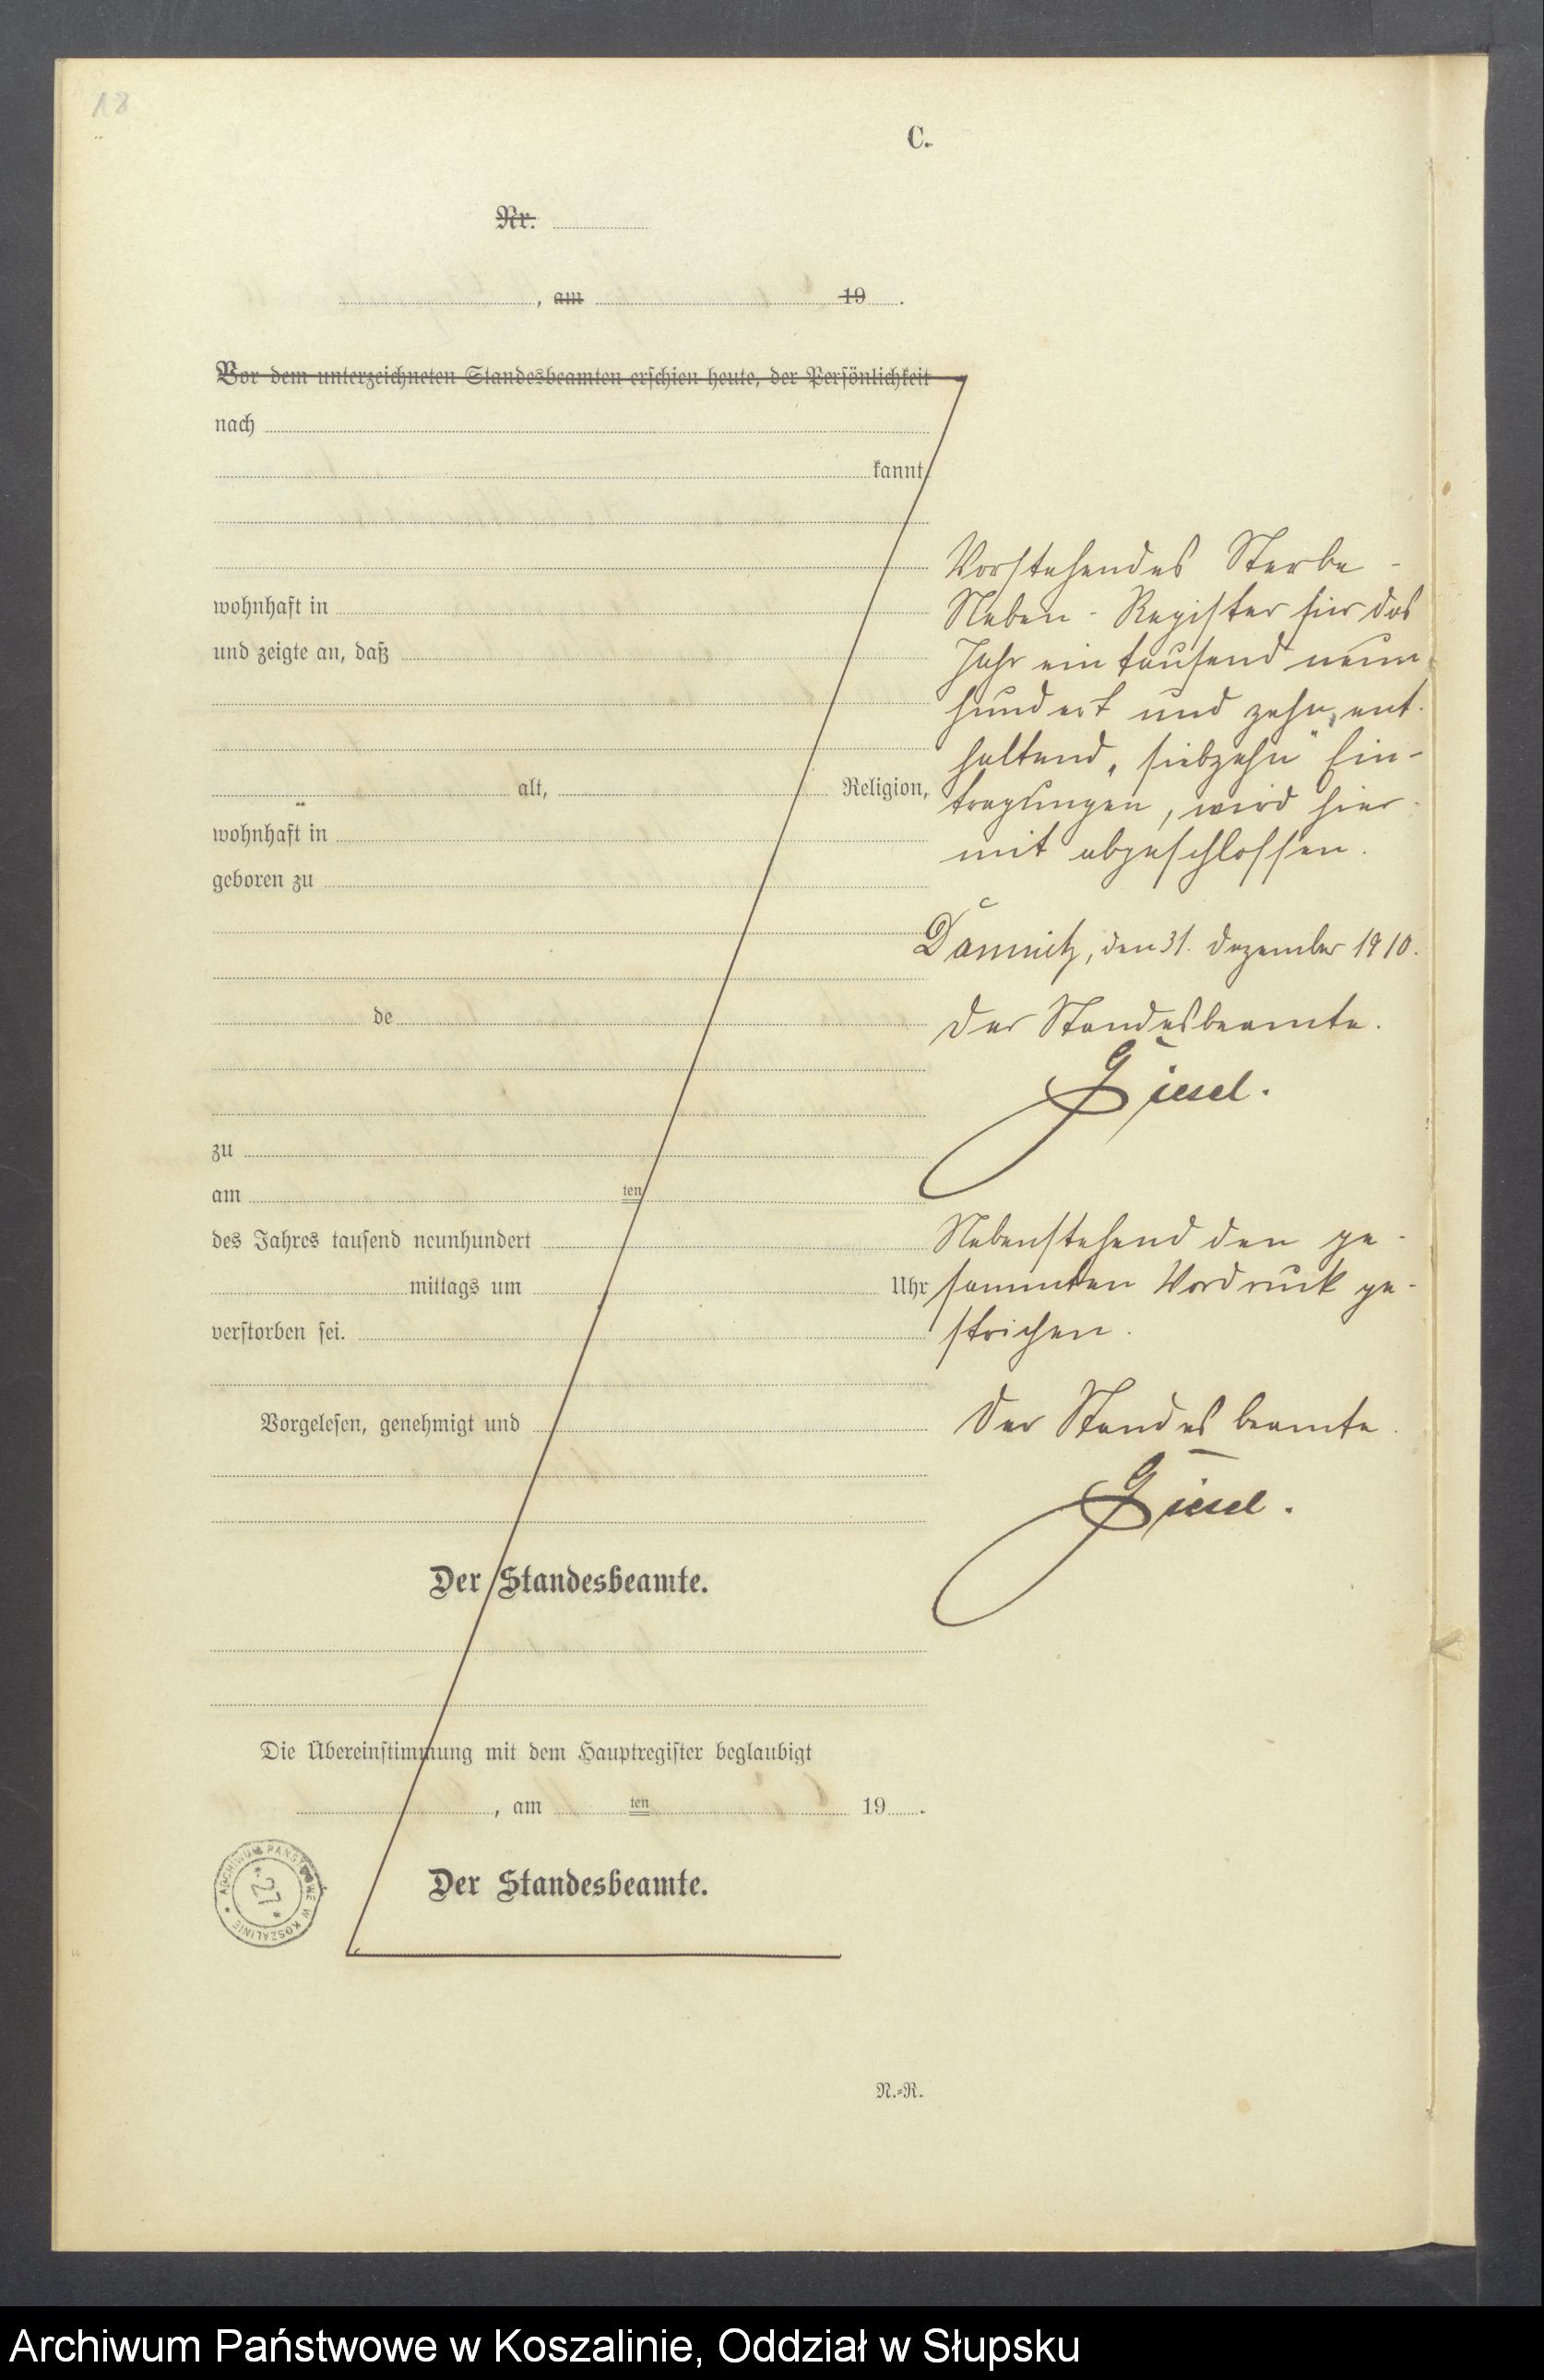 18
C.
Nr.
, am 19 .
Vor dem unterzeichneten Standesbeamten erschien heute, der Persönlichkeit
nach
kannt,
wohnhaft in
und zeigte an, daß
alt, Religion,
wohnhaft in
geboren zu
de
zu
am ten
des Jahres tausend neunhundert
mittags um Uhr
verstorben sei.
Vorgelesen, genehmigt und
Der Standesbeamte.
Die Übereinstimmung mit dem Hauptregister beglaubigt
, am ten 19 .
Der Standesbeamte.
Vorstehendes Sterbe-
Neben-Register für das
Jahr ein tausend neun
hundert und zehn, ent-
haltend „siebzehn“ Ein-
tragungen, wird hier-
mit abgeschlossen.
Damnitz, den 31. Dezember 1910.
Der Standesbeamte.
Giesel.
Nebenstehend den ge-
sammten Vordruck ge-
strichen.
Der Standesbeamte.
Giesel.
ARCHIWUM PAŃSTWOWE W KOSZALINIE
* 27 *
N.=R.
Archiwum Państwowe w Koszalinie, Oddział w Słupsku